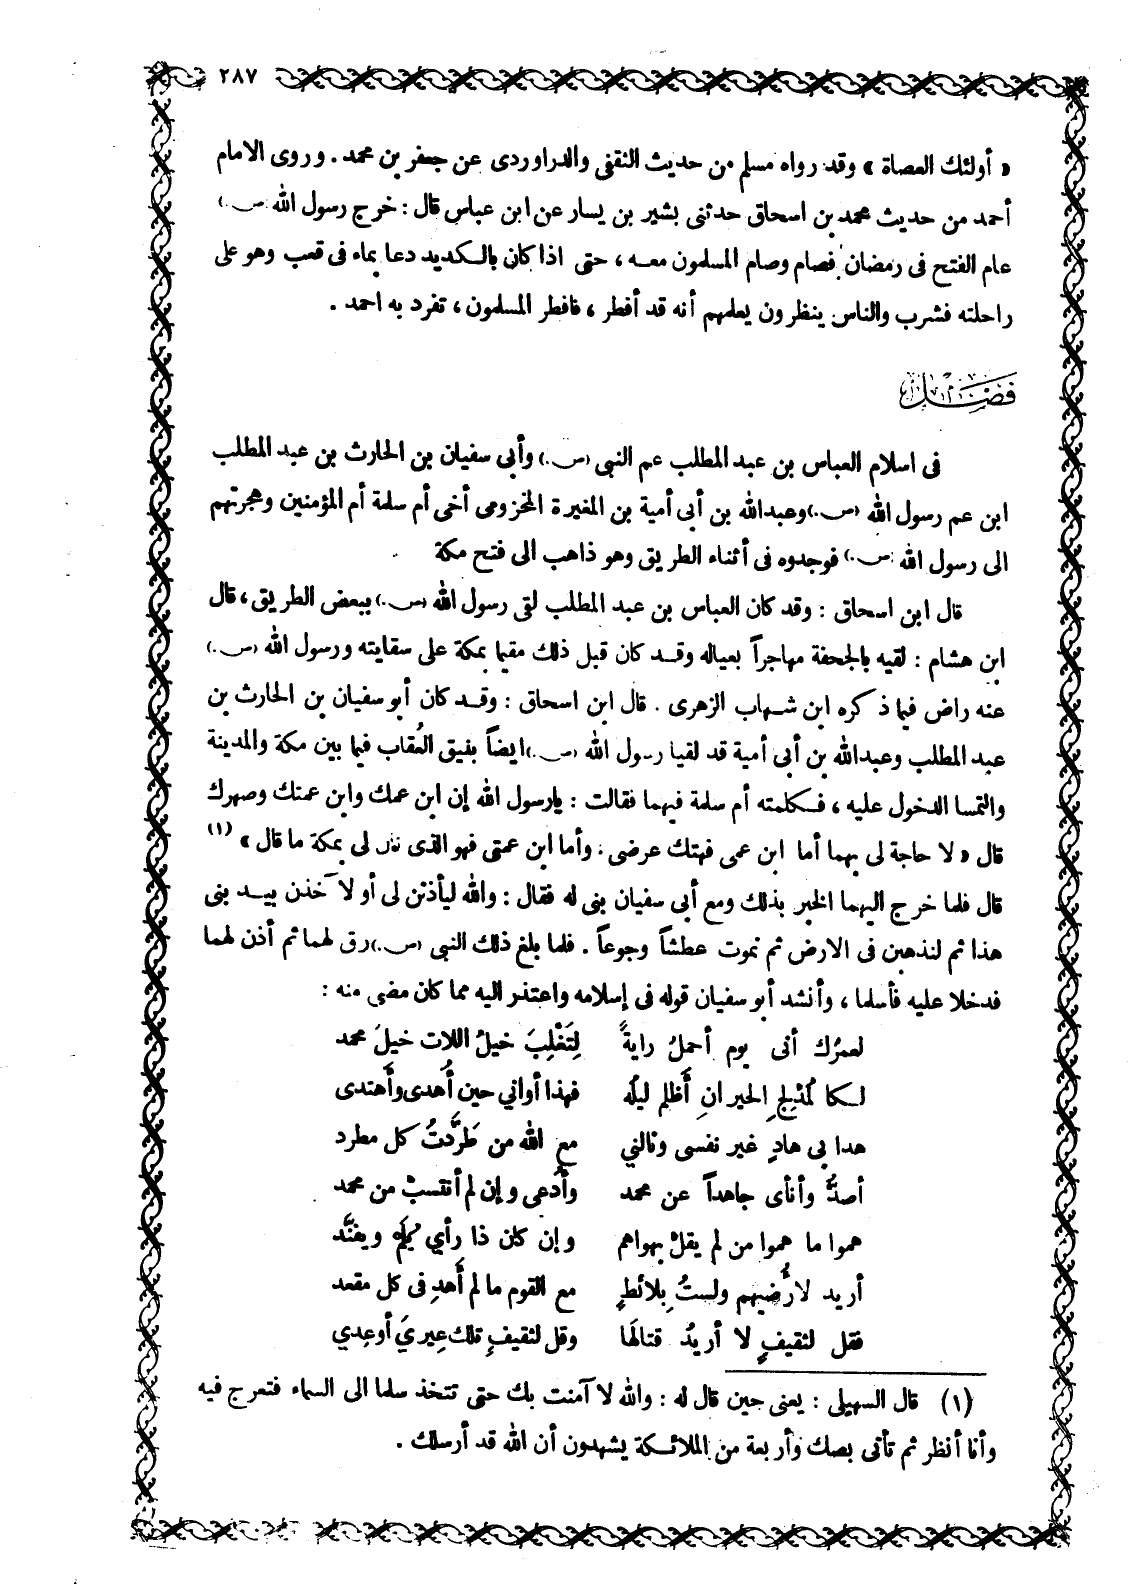 ٢٨٧
« أولئك العصاة » وقد رواه مسلم من حديث الثقفى والدراوردى عن جعفر بن محمد . وروى الامام
أحمد من حديث محمد بن اسحاق حدثنى بشير بن يسار عن ابن عباس قال : خرج رسول الله (ص.)
عام الفتح فى رمضان فصام وصام المسلمون معه ، حتى اذا كان بالكديد دعا بماء فى قعب وهو على
راحلته فشرب والناس ينظرون يعلمهم أنه قد أفطر ، فافطر المسلمون ، تفرد به احمد .
فصل
فى اسلام العباس بن عبد المطلب عم النبى (ص.) وأبى سفيان بن الحارث بن عبد المطلب
ابن عم رسول الله (ص.) وعبدالله بن أبى أمية بن المغيرة المخزومى أخى أم سلمة أم المؤمنين وهجرتهم
الى رسول الله (ص.) فوجدوه فى أثناء الطريق وهو ذاهب الى فتح مكة
قال ابن اسحاق : وقد كان العباس بن عبد المطلب لقى رسول الله (ص.) ببعض الطريق ، قال
ابن هشام : لقيه بالجحفة مهاجراً بعياله وقد كان قبل ذلك مقيما بمكة على سقايته ورسول الله (ص.)
عنه راض فيما ذكره ابن شهاب الزهرى . قال ابن اسحاق : وقد كان أبو سفيان بن الحارث بن
عبد المطلب وعبدالله بن أبى أمية قد لقيا رسول الله (ص.) ايضاً بنيق العُقاب فيما بين مكة والمدينة
والتمسا الدخول عليه ، فكلمته أم سلمة فيهما فقالت : يارسول الله إن ابن عمك وابن عمتك وصهرك
قال « لا حاجة لى بهما أما ابن عمى فهتك عرضى . وأما ابن عمتى فهو الذى قال لى بمكة ما قال » (١)
قال فلما خرج اليهما الخبر بذلك ومع أبى سفيان بنى له فقال : والله ليأذنن لى أو لآخذن بيد بنى
هذا ثم لنذهبن فى الارض ثم نموت عطشاً وجوعاً . فلما بلغ ذلك النبى (ص.) رق لهما ثم أذن لهما
فدخلا عليه فأسلما ، وأنشد أبو سفيان قوله فى إسلامه واعتذر اليه مما كان مضى منه :
لعمرُك أنى يوم أحملُ رايةً لِتَغْلِبَ خيلُ اللات خيلَ محمد
لكالمُدْلِجِ الحيرانِ أَظلم ليلُه فهذا أواني حين أُهدى وأَهتدى
هدا بى هادٍ غير نفسى ونالني مع الله من طَرَّدتُ كل مطرد
أصدُّ وأنأى جاهداً عن محمد وأُدعى وإن لم أنتسبْ من محمد
هموا ما هموا من لم يقلْ بهواهم وإن كان ذا رأي يُلَم ويفنَّد
أريد لأُرْضيهم ولستُ بِلائطٍ مع القوم ما لم أَهدِ فى كل مقعد
فقل لثقيفٍ لا أريدُ قتالَها وقل لثقيفٍ تلك عِيرىَ أوعِدي
(١) قال السهيلى : يعنى حين قال له : والله لا آمنت بك حتى تتخذ سلما الى السماء فتعرج فيه
وأنا أنظر ثم تأتى بصك وأربعة من الملائكة يشهدون أن الله قد أرسلك .